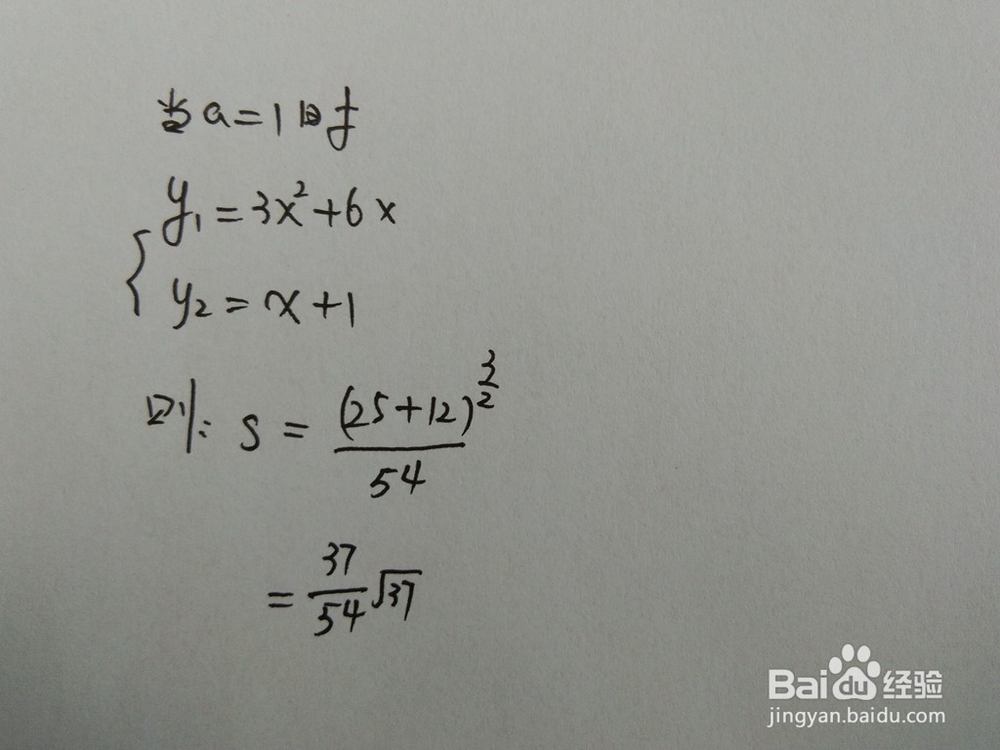 当a=1时
y₁=3x²+6x
{
y₂=x+1
则: S=(25+12)^(3/2)/54
=37/54√37
Bai du 经验
jingyan.baidu.com